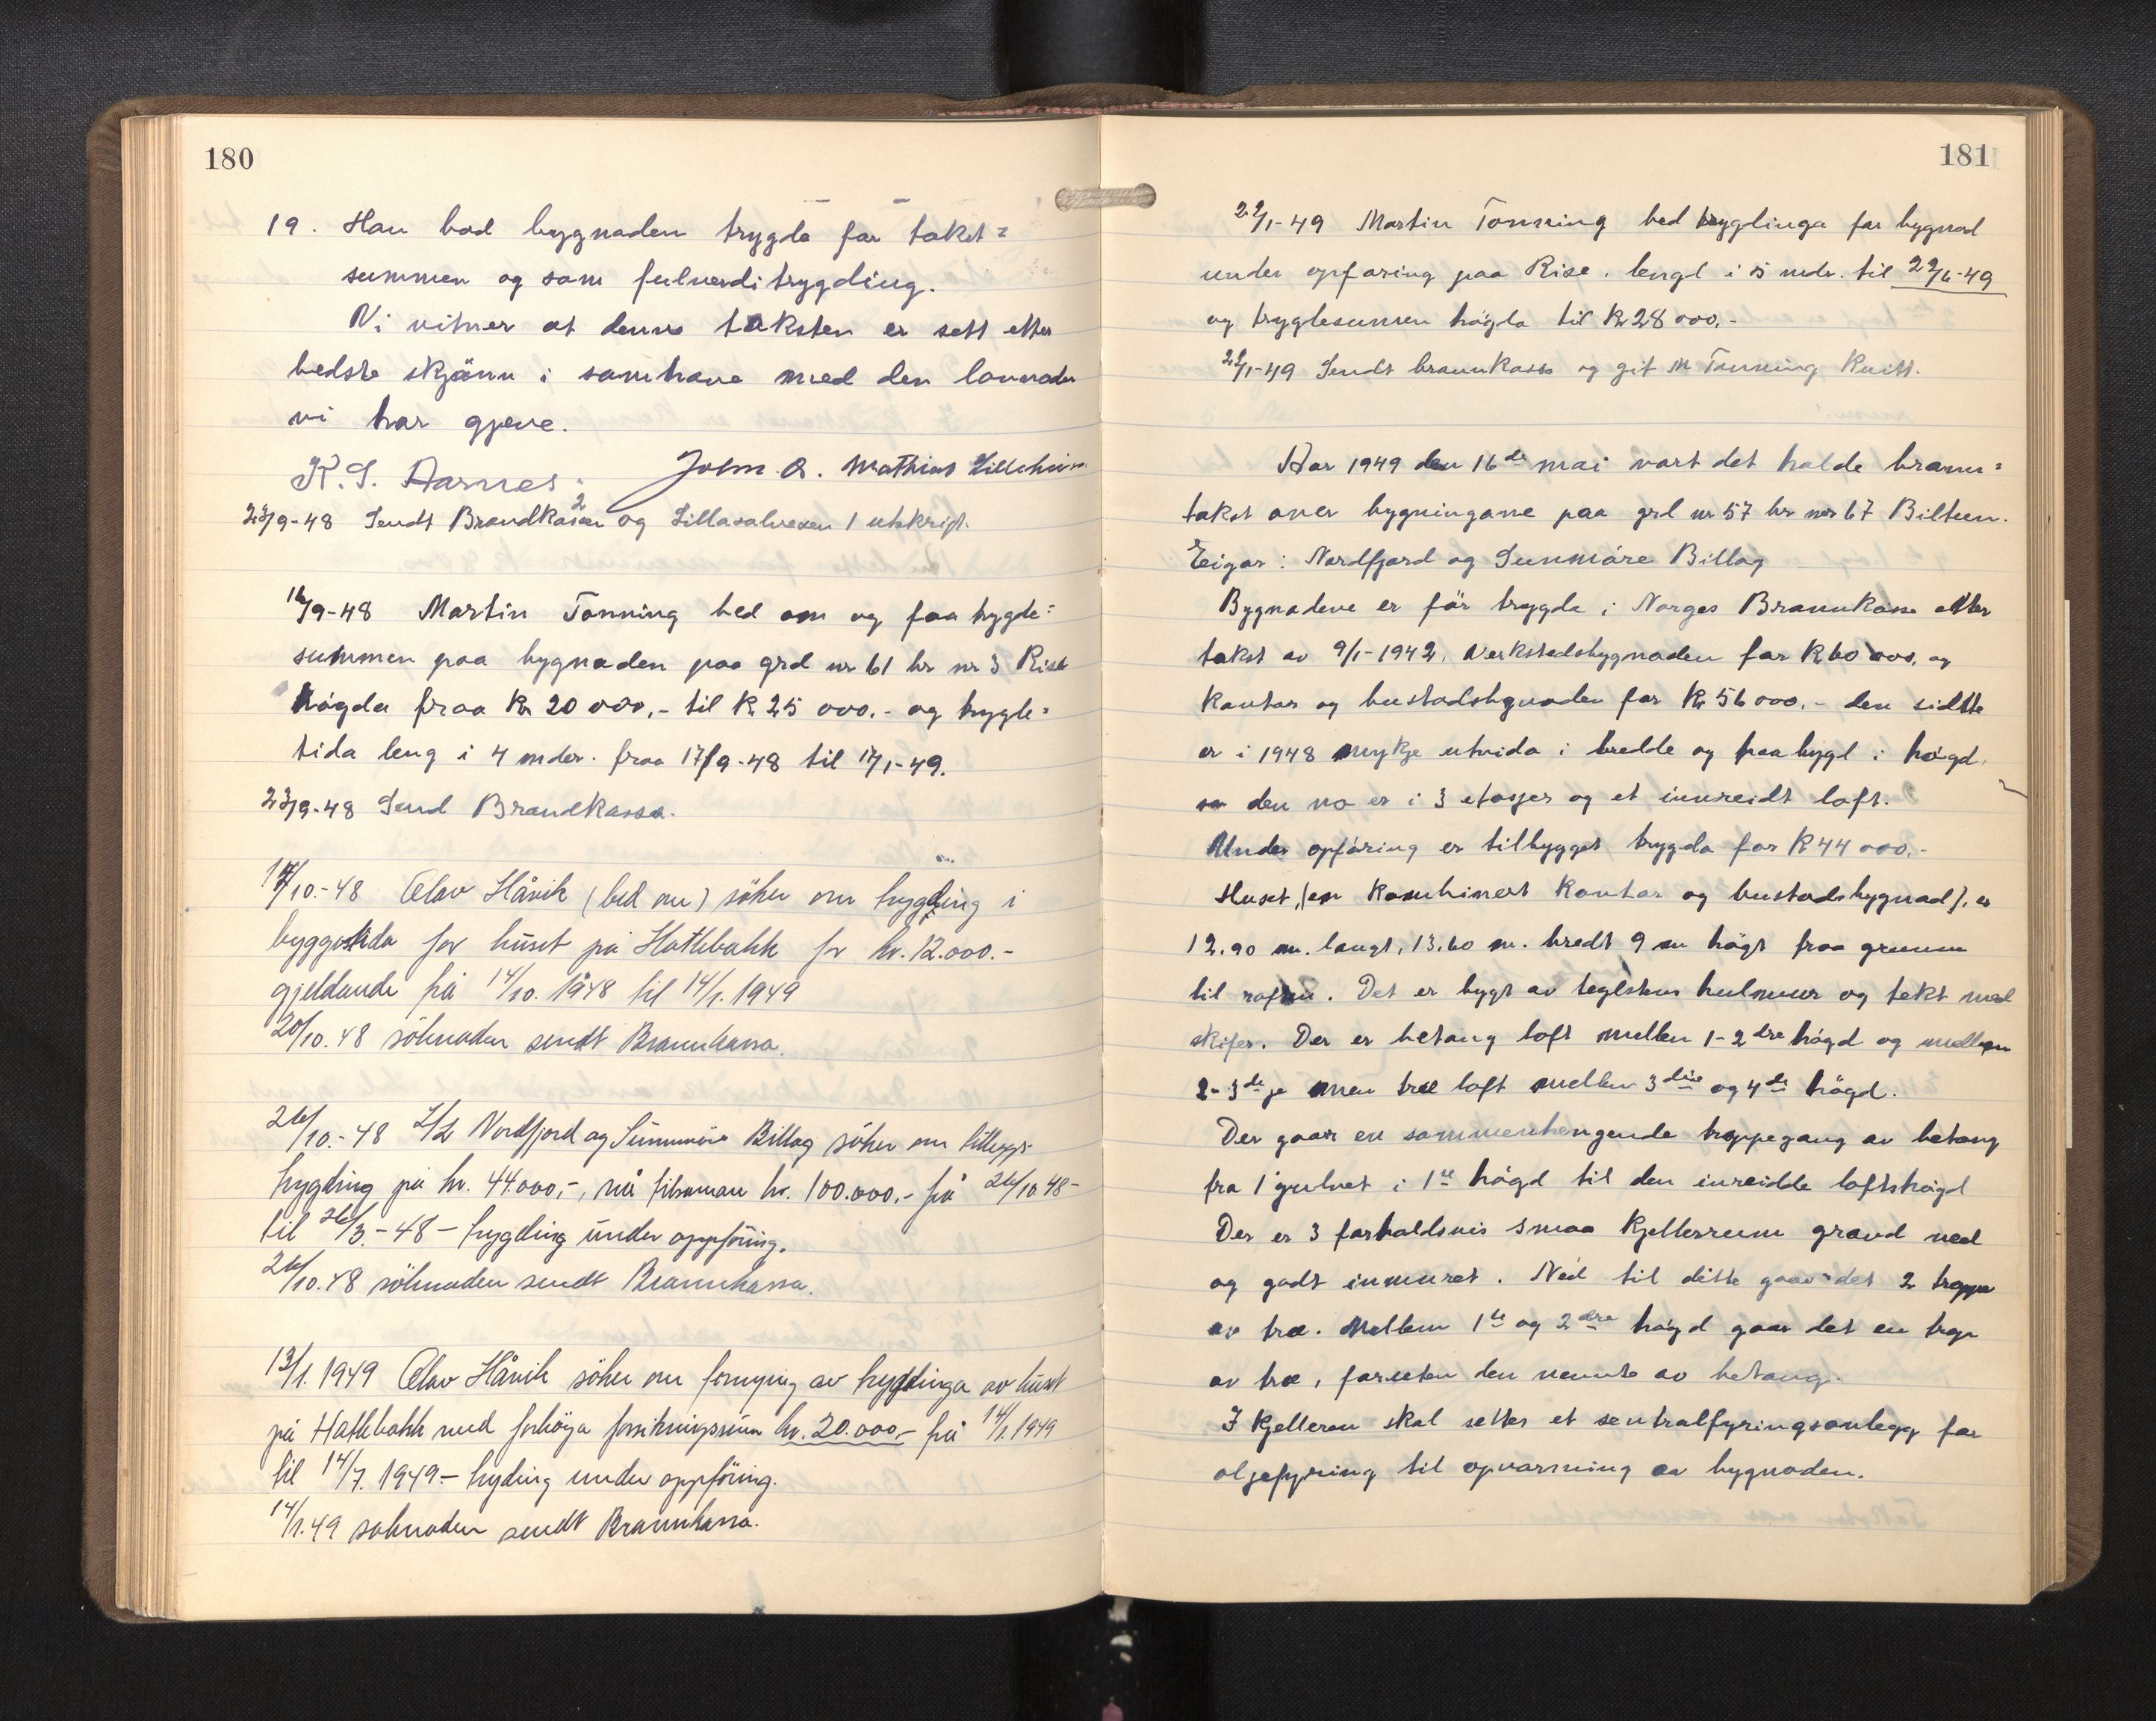 180
19. Han bad bygnaden trygda for takst=
summen og som fulverditrygding.
Vi vitner at denne taksten er sett etter
bedste skjönn i samhave med den lovnaden
vi har gjeve.
K. S. Aarnes. John A. Mathias Lilleheim
23/9-48 Sendt Brandkassen 2 og Lillasalvesen 1 utskrift.
16/9-48 Martin Tonning bed om og faa trygde=
summen paa bygnaden paa grd nr 61 br nr 3 Rise
högda fraa Kr 20 000,- til Kr 25 000.- og trygde=
tida leng i 4 mnder. fraa 17/9-48 til 17/1-49.
23/9-48 Send Brandkassa.
14/10.-48 Olav Håvik (bed om) söker om trygding i
byggetida for huset på Hatlebakk for kr. 12.000.-
gjeldande frå 14/10. 1948 til 14/1. 1949
20/10.48 söknaden sendt Brannkassa.
26/10.-48 L/L Nordfjord og Sunnmöre Billag söker om tilleggs-
trygding på kr. 44.000,-, nå tilsaman kr. 100.000.- frå 26/10 48-
til 26/3.-48 - trygding under oppföring.
26/10.48 söknaden sendt Brannkassa.
13/1. 1949 Olav Håvik söker om fornying av trygdinga av huset
på Hatlebakk med forhöya forsikringssum kr. 20.000,- frå 14/1. 1949
til 14/7. 1949.- tryding under oppföring.
14/1.49 söknaden sendt Brannkassa.
181
22/1-49 Martin Tonning bed trygdinga for bygnad
under opföring paa Rise. lengd i 5 mdr. til 22/6-49
og trygdesumen högda til Kr 28 000.-
22/1-49 Sendt brannkassa og git M Tonning Kvitt.
Aar 1949 den 16de mai vart det halde brann=
takst over bygningane paa grd nr 57 br nr 67 Bilteen.
Eigar: Nordfjord og Sunnmöre Billag
Bygnadene er för trygda i Norges Brannkasse etter
takst av 9/1-1942. Verkstedsbygnaden for Kr 60 000. og
Kontor og bustadsbgnaden for Kr 56 000.- den sidste
er i 1948 mykje utvida i bredde og paabygt i högd,
so den no er i 3 etasjer og et innreidt loft.
Under opföring er tilbygget trygda for Kr 44 000.-
Huset, (en Kombinert Kontor og bustadsbygnad), er
12.90 m. langt, 13.60 m. bredt 9 m högt fraa grunn
til rafen. Det er bygt av teglstens hulmur og tekt med
skifer. Der er betong loft mellem 1-2dre högd og mellem
2-3dje men tre loft mellem 3die og 4de högd.
Der gaar en sammenhengende troppegang av betong
fra 1 gulvet i 1ste högd til den inreidde loftshögd
Der er 3 forholdsvis smaa Kjellerrum gravd ned
og godt inmuret. Ned til ditte gaar det 2 troppe
av tre. Mellem 1ste og 2dre högd gaar det en trop
av tre, foruten den nemnte av betong.
I Kjelleren skal settes et sentralfyringsanlegg for
oljefyring til opvarming av bygnaden.